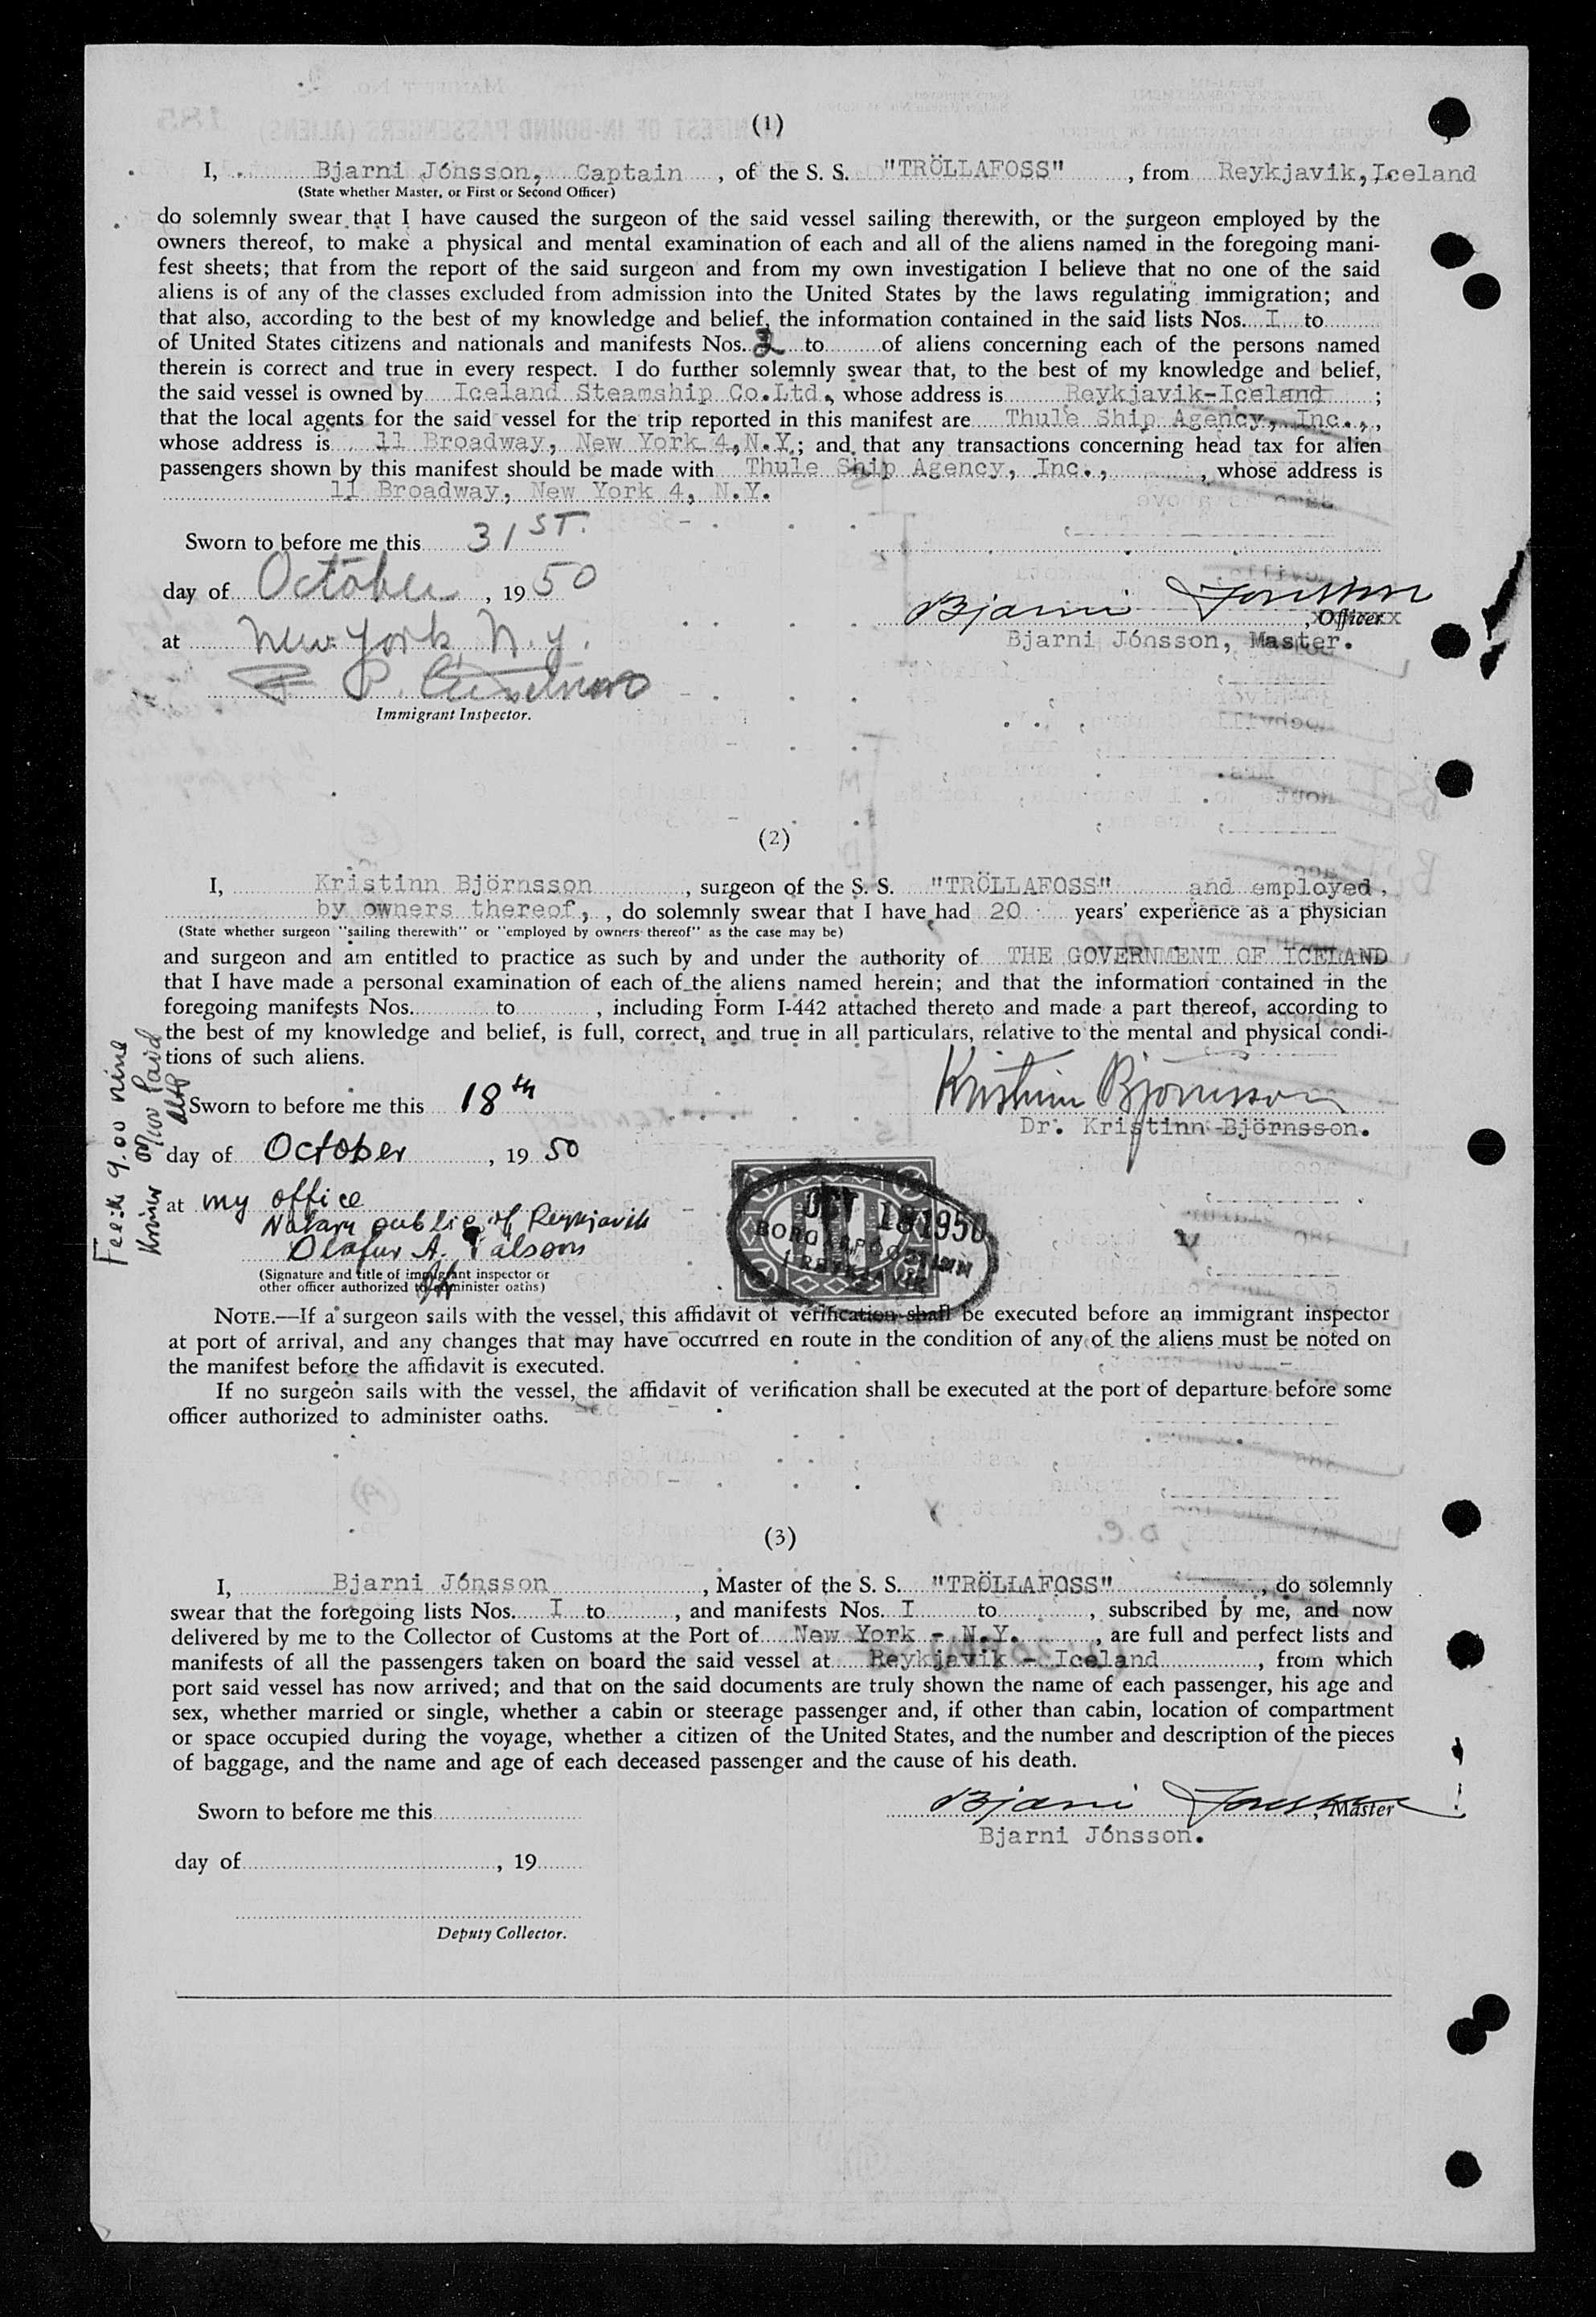 (1)
I, Bjarni Jónsson, Captain, of the S. S. "TRÖLLAFOSS", from Reykjavik, Iceland
(State whether Master, or First or Second Officer)
do solemnly swear that I have caused the surgeon of the said vessel sailing therewith, or the surgeon employed by the
owners thereof, to make a physical and mental examination of each and all of the aliens named in the foregoing mani-
fest sheets; that from the report of the said surgeon and from my own investigation I believe that no one of the said
aliens is of any of the classes excluded from admission into the United States by the laws regulating immigration; and
that also, according to the best of my knowledge and belief, the information contained in the said lists Nos. I to
of United States citizens and nationals and manifests Nos. 2 to of aliens concerning each of the persons named
therein is correct and true in every respect. I do further solemnly swear that, to the best of my knowledge and belief,
the said vessel is owned by Iceland Steamship Co.Ltd., whose address is Reykjavik-Iceland ;
that the local agents for the said vessel for the trip reported in this manifest are Thule Ship Agency, Inc.,,
whose address is 11 Broadway, New York 4, N.Y.; and that any transactions concerning head tax for alien
passengers shown by this manifest should be made with Thule Ship Agency, Inc., , whose address is
11 Broadway, New York 4, N.Y.
Sworn to before me this 31ST.
day of October, 1950
Bjarni Jónsson
, Officer
at New York, N.Y.
Bjarni Jónsson, Master.
Immigrant Inspector.
(2)
I, Kristinn Björnsson, surgeon of the S. S. "TRÖLLAFOSS" and employed,
by owners thereof, , do solemnly swear that I have had 20 years' experience as a physician
(State whether surgeon "sailing therewith" or "employed by owners thereof" as the case may be)
and surgeon and am entitled to practice as such by and under the authority of THE GOVERNMENT OF ICELAND
that I have made a personal examination of each of the aliens named herein; and that the information contained in the
foregoing manifests Nos. to , including Form I-442 attached thereto and made a part thereof, according to
the best of my knowledge and belief, is full, correct, and true in all particulars, relative to the mental and physical condi-
tions of such aliens.
Fee: kr 9.00 nine
Krónur 00/100 Paid
Kristinn Björnsson
Sworn to before me this 18th
Dr. Kristinn Björnsson.
day of October, 1950
at my office
Notary public of Reykjavik
Olafur A. Palsson
OCT 18 1950
(Signature and title of immigrant inspector or
other officer authorized to administer oaths)
NOTE.—If a surgeon sails with the vessel, this affidavit of verification shall be executed before an immigrant inspector
at port of arrival, and any changes that may have occurred en route in the condition of any of the aliens must be noted on
the manifest before the affidavit is executed.
If no surgeon sails with the vessel, the affidavit of verification shall be executed at the port of departure before some
officer authorized to administer oaths.
(3)
I, Bjarni Jónsson, Master of the S. S. "TRÖLLAFOSS", do solemnly
swear that the foregoing lists Nos. I to , and manifests Nos. I to , subscribed by me, and now
delivered by me to the Collector of Customs at the Port of New York - N.Y. , are full and perfect lists and
manifests of all the passengers taken on board the said vessel at Reykjavik - Iceland , from which
port said vessel has now arrived; and that on the said documents are truly shown the name of each passenger, his age and
sex, whether married or single, whether a cabin or steerage passenger and, if other than cabin, location of compartment
or space occupied during the voyage, whether a citizen of the United States, and the number and description of the pieces
of baggage, and the name and age of each deceased passenger and the cause of his death.
Sworn to before me this
Bjarni Jónsson, Master
Bjarni Jónsson.
day of , 19
Deputy Collector.